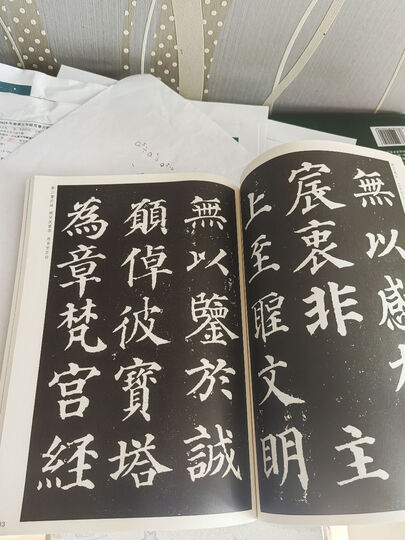 無以感
宸衷非 主
上至聖文明
無以鑒於誠
願倬彼寶塔
為章梵宮經